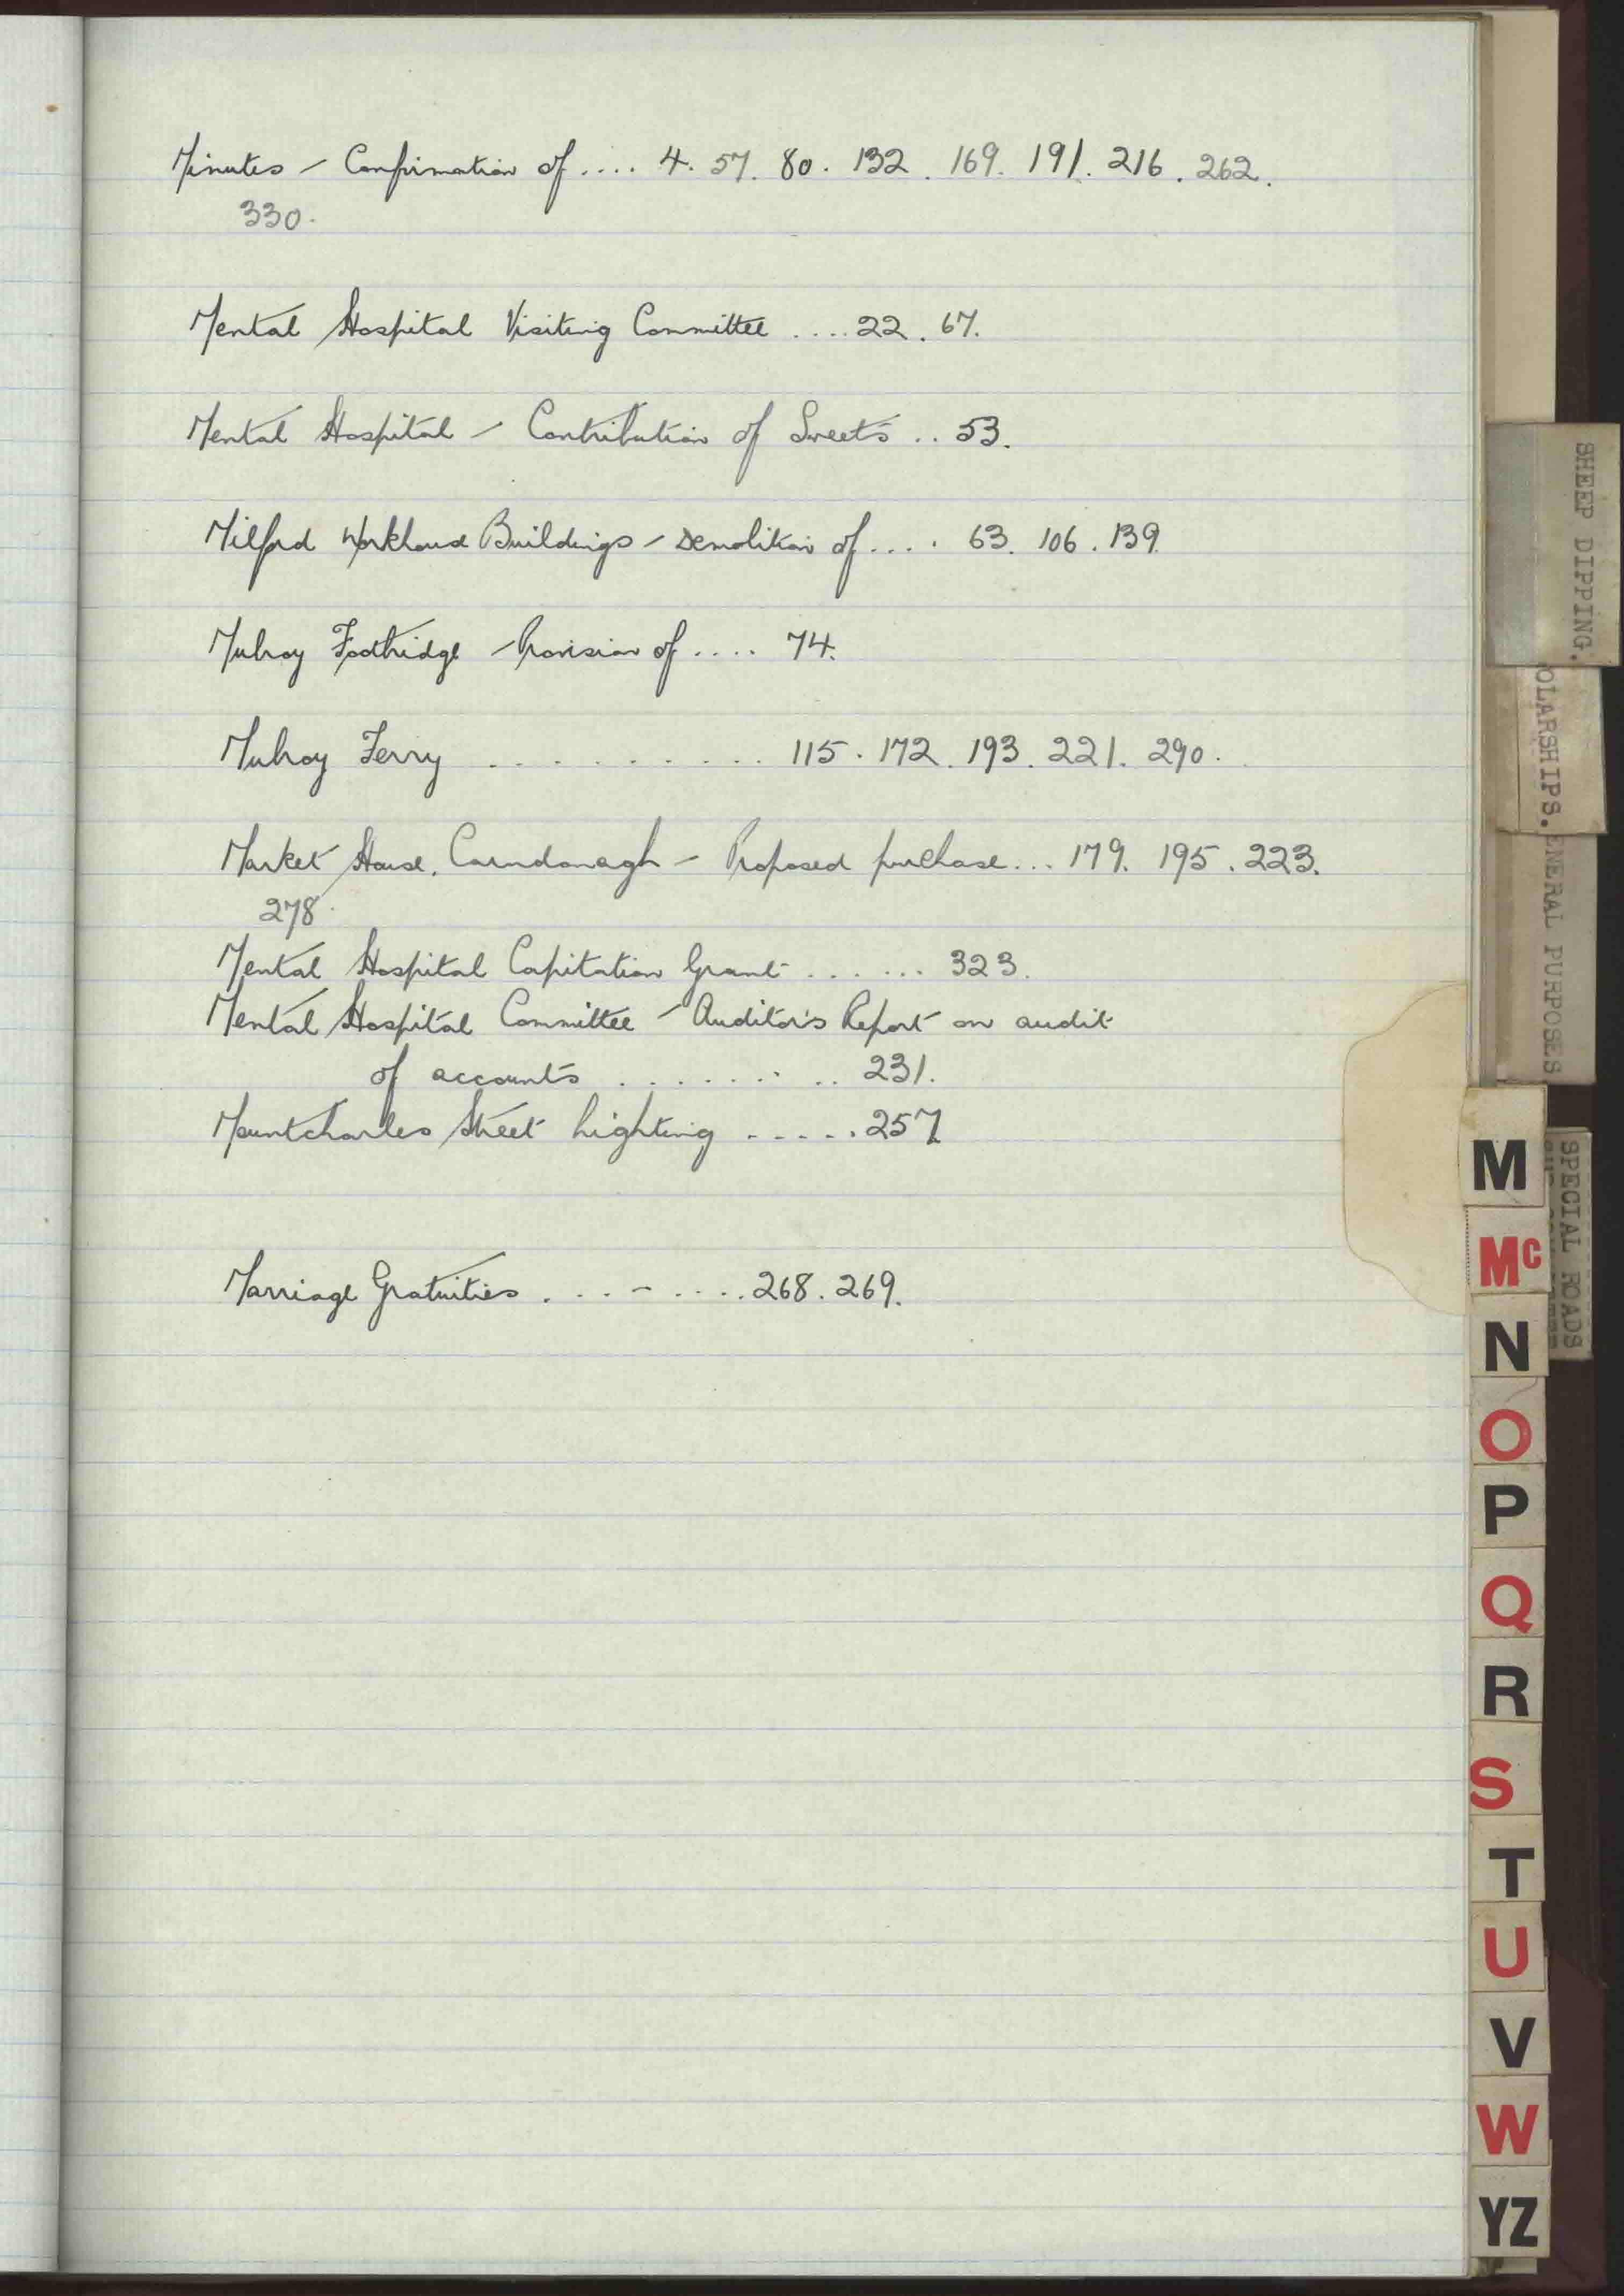 Minutes - Confirmation of .... 4. 57. 80. 132. 169. 191. 216. 262.
330.
Mental Hospital Visiting Committee .... 22. 67.
Mental Hospital - Contribution of Sweets .. 53.
Milford Workhouse Buildings - Demolition of .... 63. 106. 139.
Mulroy Footbridge - Provision of .... 74.
Mulroy Ferry .......... 115. 172. 193. 221. 290.
Market House, Carndonagh - Proposed purchase ... 179. 195. 223.
278.
Mental Hospital Capitation Grant ...... 323.
Mental Hospital Committee - Auditor's Report on audit
of accounts ......... 231.
Mountcharles Street Lighting ..... 257
Marriage Gratuities ........ 268. 269.
SHEEP DIPPING.
OLARSHIPS.
ENERAL PURPOSES
SPECIAL ROADS
M
Mc
N
O
P
Q
R
S
T
U
V
W
YZ